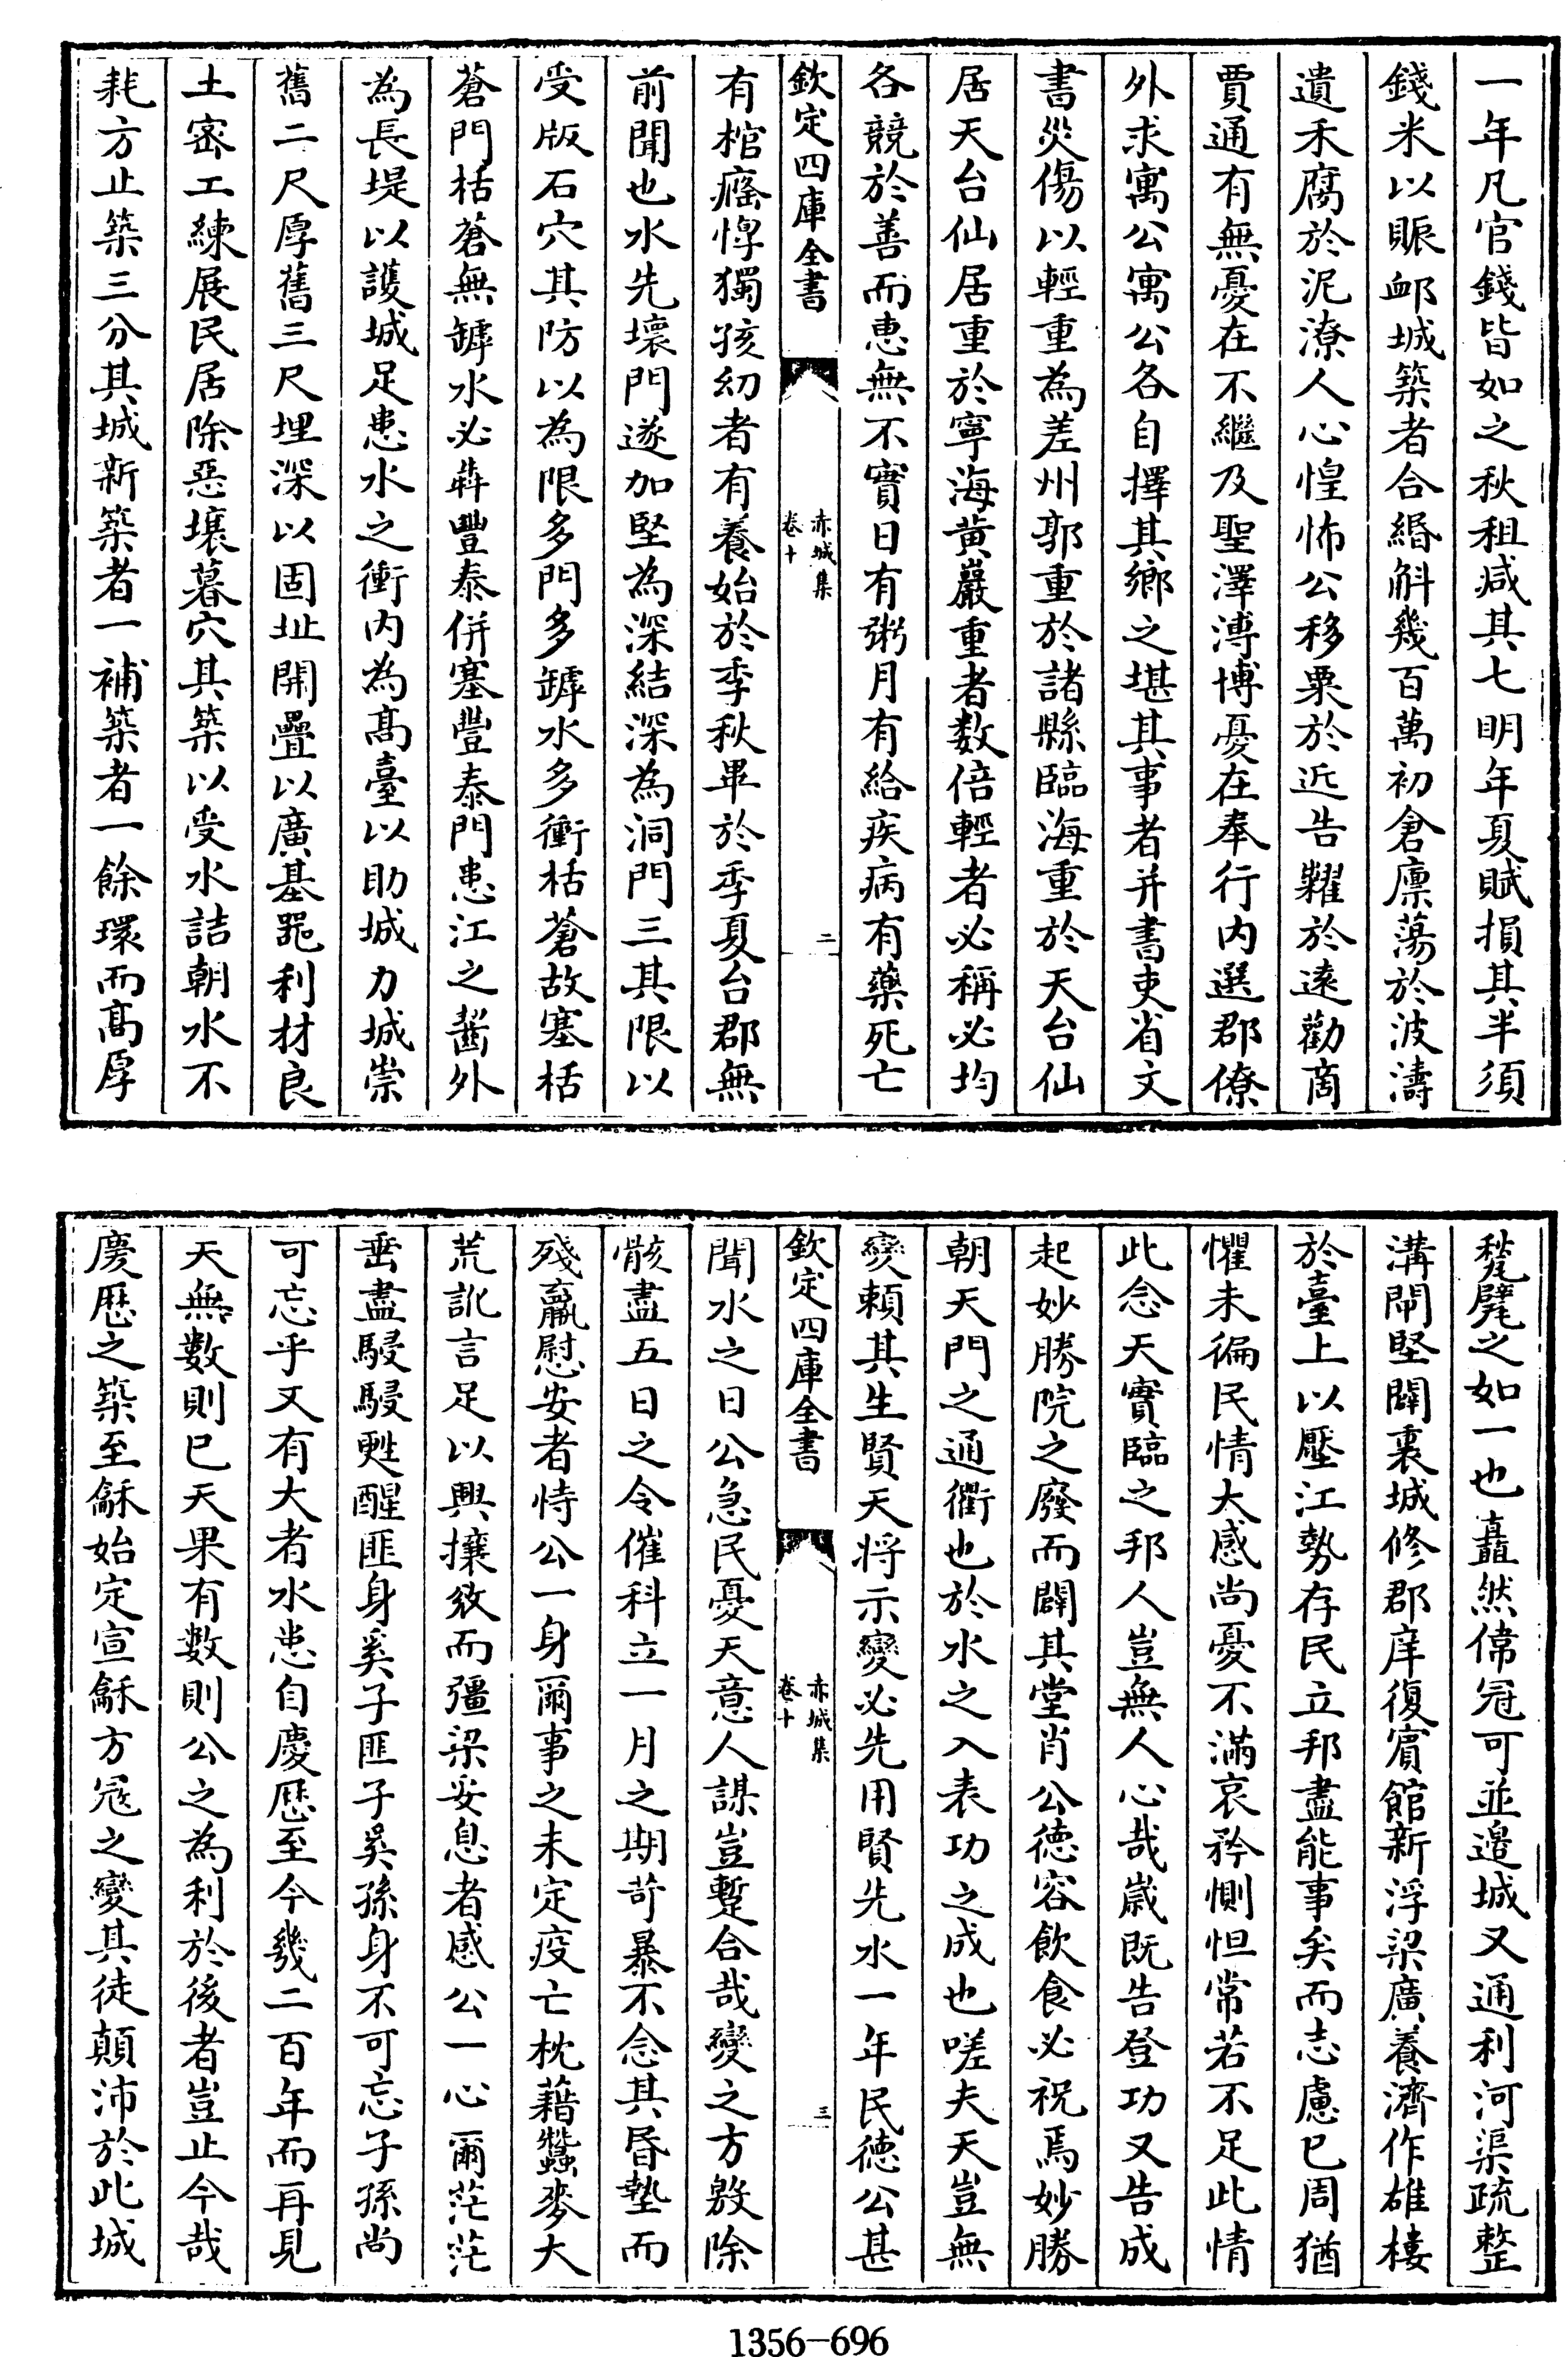 一年凡官錢皆如之秋租减其七明年夏賦損其半須
錢米以賑䘏城築者合緡斛幾百萬初倉廪蕩於波濤
遺禾腐於泥潦人心惶怖公移粟於近告糶於逺勸商
賈通有無憂在不繼及聖澤溥博憂在奉行内選郡僚
外求寓公寓公各自擇其鄉之堪其事者并書吏省文
書災傷以輕重為差州郭重於諸縣臨海重於天台仙
居天台仙居重於寧海黄巖重者数倍輕者必稱必均
各競於善而恵無不實日有粥月有給疾病有藥死亡
欽定四庫全書
赤城集
卷十
二
有棺癃惸獨孩幼者有養始於季秋畢於季夏台郡無
前聞也水先壞門遂加堅為深結深為洞門三其限以
受版石穴其防以為限多門多罅水多衝栝蒼故塞栝
蒼門栝蒼無罅水必犇豐泰併塞豐泰門患江之齧外
為長堤以護城足患水之衝内為髙臺以助城力城崇
舊二尺厚舊三尺埋深以固址開疊以廣基器利材良
土宻工練展民居除惡壤暮穴其築以受水詰朝水不
耗方止築三分其城新築者一補築者一餘環而髙厚
甃甓之如一也矗然偉冠可並邉城又通利河渠疏整
溝閘堅闢裏城修郡庠復賔館新浮梁廣養濟作雄樓
於臺上以壓江勢存民立邦盡能事矣而志慮已周猶
懼未徧民情大感尚憂不滿哀矜惻怛常若不足此情
此念天實臨之邦人豈無人心哉嵗既告登功又告成
起妙勝院之廢而闢其堂肖公徳容飲食必祝焉妙勝
朝天門之通衢也於水之入表功之成也嗟夫天豈無
變頼其生賢天将示變必先用賢先水一年民徳公甚
欽定四庫全書
赤城集
卷十
三
聞水之日公急民憂天意人謀豈蹔合哉變之方殷除
骸盡五日之令催科立一月之期苛暴不念其昏墊而
殘羸慰安者恃公一身爾事之未定疫亡枕藉蠶麥大
荒訛言足以興攘敓而彊梁妥息者感公一心爾茫茫
垂盡駸駸甦醒匪身奚子匪子奚孫身不可忘子孫尚
可忘乎又有大者水患自慶厯至今幾二百年而再見
天無數則已天果有數則公之為利於後者豈止今哉
慶厯之築至龢始定宣龢方冦之變其徒顛沛於此城
1356-696